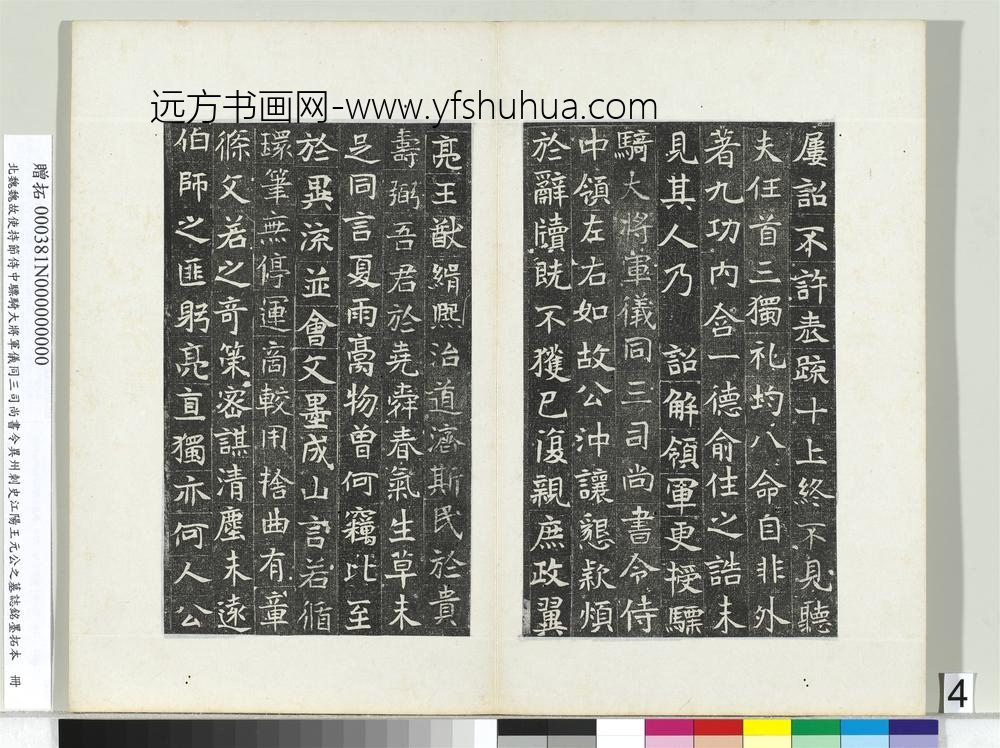 远方书画网-www.yfshuhua.com
屢詔不許表疏十上終不見聽
夫任首三獨礼均八命自非外
著九功內含一德俞往之誥未
見其人乃 詔解領軍更授驃
騎大將軍儀同三司尚書令侍
中領左右如故公沖讓懇款煩
於辭牘既不獲已復親庶政翼
亮王猷緝熙治道濟斯民於貴
壽弼吾君於堯舜春氣生草未
足同言夏雨膏物曾何竊比至
於異流並會文墨成山言若循
環筆無停運商較用捨曲有章
條文若之奇策密謀清塵未遠
伯師之匪躬亮直獨亦何人公
贈拓 000381N000000000
北魏魏故使持節侍中驃騎大將軍儀同三司尚書令冀州刺史江陽王元公之墓誌銘墨拓本 冊
4